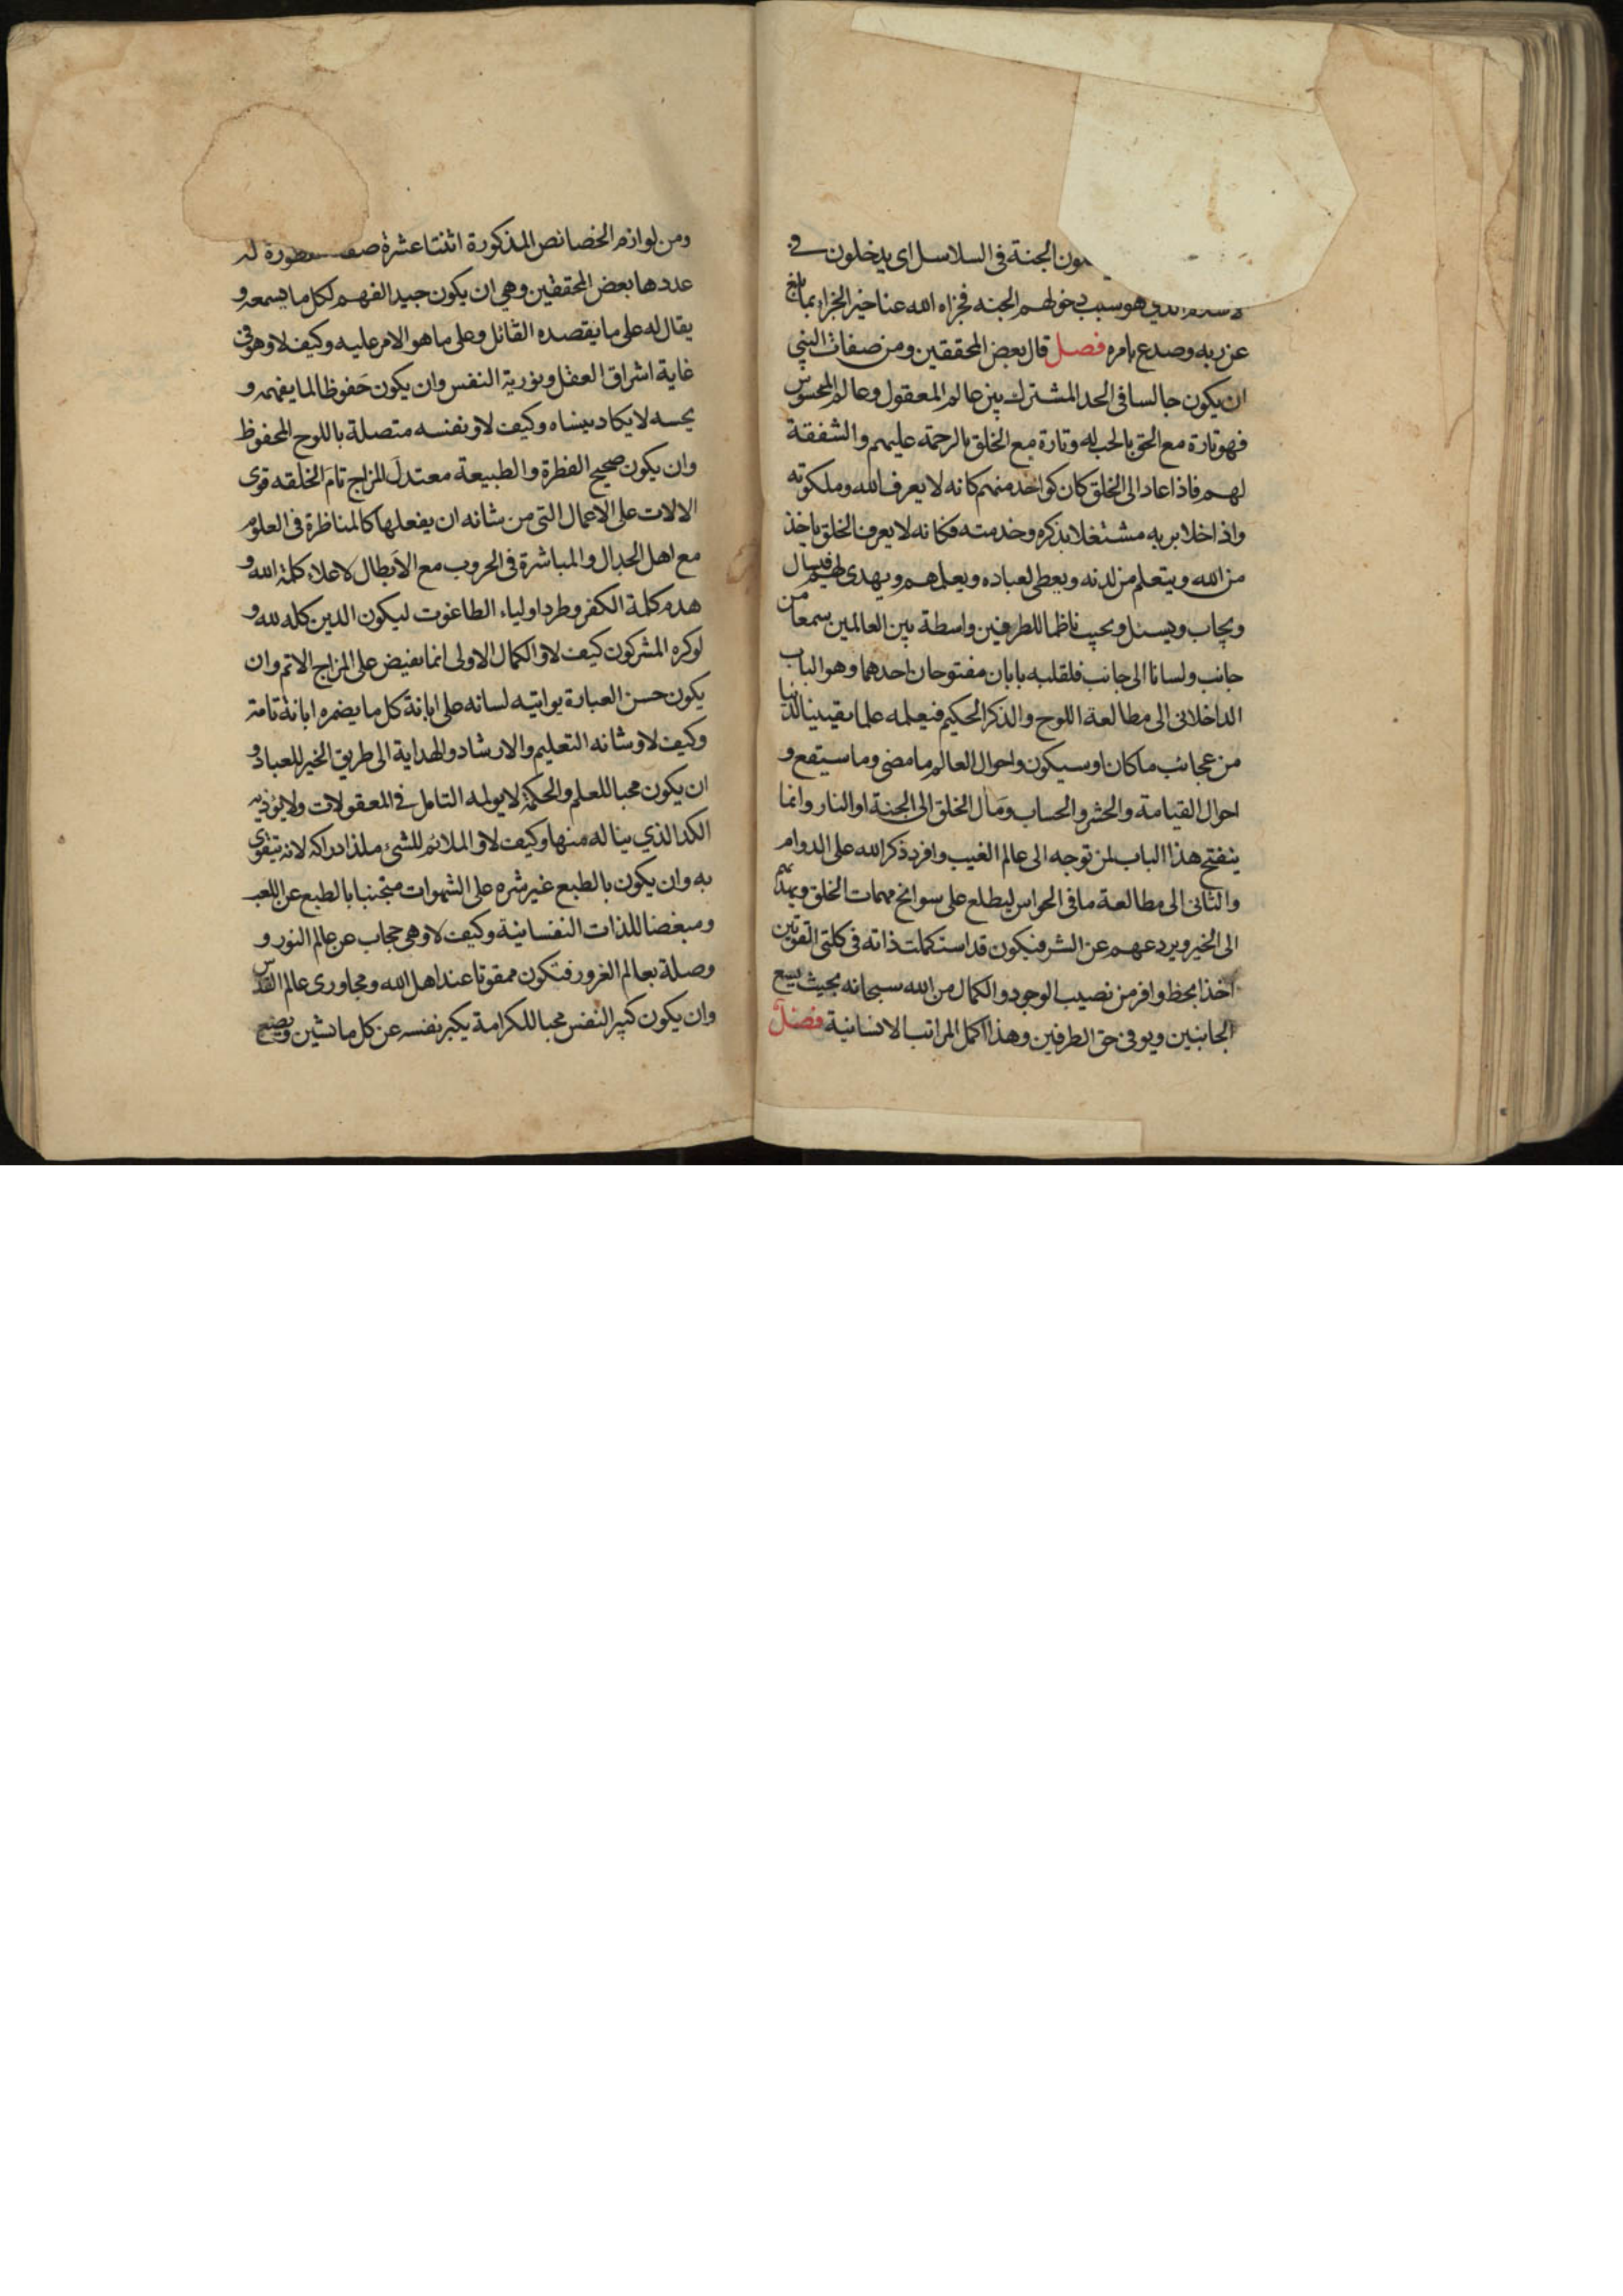 الجنة في السلاسل اى يدخلون في
هو سبب دخولهم الجنه فجزاه الله عنا خير الجزاء بما بلغ
عن ربه وصدع بامره فصل قال بعض المحققين ومن صفات النبي
ان يكون جالسا فى الحد المشترك بين عالم المعقول وعالم المحسوس
فهو تارة مع الحق بالحب له وتارة مع الخلق بالرحمة عليهم والشفقة
لهم فاذا عاد الى الخلق كان كواحد منهم كانه لا يعرف الله وملكوته
واذا خلا بربه مشتغلا بذكره وخدمته فكانه لا يعرف الخلق ياخذ
من الله ويتعلم من لدنه ويعطى لعباده ويعلمهم ويهدى لهم فيسال
ويجاب ويسئل ويجيب ناظما للطرفين واسطة بين العالمين سمعا من
جانب ولسانا الى جانب فلقلبه بابان مفتوحان احدهما وهو الباب
الداخلانى الى مطالعة اللوح والذكر الحكيم فيعلمه علما يقينيا لدنيا
من عجائب ما كان او سيكون واحوال العالم ما مضى وما سيقع و
احوال القيامة والحشر والحساب ومآل الخلق الى الجنة او النار وانما
ينفتح هذا الباب لمن توجه الى عالم الغيب وافرد ذكر الله على الدوام
والثانى الى مطالعة ما فى الحواس ليطلع على سوانح مهمات الخلق ويهديهم
الى الخير ويردعهم عن الشر فيكون قد استكملت ذاته فى كلتى القوتين
آخذا بحظ وافر من نصيب الوجود والكمال من الله سبحانه بحيث يسع
الجانبين ويوفى حق الطرفين وهذا اكمل المراتب الانسانية فصل
ومن لوازم الخصائص المذكورة اثنتا عشرة له
عددها بعض المحققين وهى ان يكون جيد الفهم لكل ما يسمعه و
يقال له على ما يقصده القائل وعلى ما هو الامر عليه وكيف لا وهو فى
غاية اشراق العقل ونورية النفس وان يكون حَفوظا لما يفهمه و
يحسه لا يكاد ينساه وكيف لا ونفسه متصلة باللوح المحفوظ
وان يكون صحيح الفطرة والطبيعة معتدلَ المزاج تامَ الخلقه قوى
الالات على الاعمال التى من شانه ان يفعلها كالمناظرة فى العلوم
مع اهل الجدال والمباشرة فى الحروب مع الأبطال لاعلاء كلمة الله و
هدم كلمة الكفر وطرد اولياء الطاغوت ليكون الدين كله لله و
لو كره المشركون كيف لا والكمال الاولى انما يفيض على المزاج الاتم وان
يكون حسن العبارة يواتيه لسانه على ابانة كل ما يضمره ابانة تامة
وكيف لا وشانه التعليم والارشاد والهداية الى طريق الخير للعباد و
ان يكون محبا للعلم والحكمة لا يولمه التامل فى المعقولات ولا يوذيه
الكد الذي يناله منها وكيف لا والملائم للشئ ملذ ادراكه لانه يتقوى
به وان يكون بالطبع غير شره على الشهوات متجنبا بالطبع عن اللعب
ومبغضا للذات النفسانية وكيف لا وهى حجاب عن عالم النور و
وصلة بعالم الغرور فتكون ممقوتا عند اهل الله ومجاورى عالم القدس
وان يكون كبير النفس محبا للكرامة يكبر نفسه عن كل ما يشين ويضع